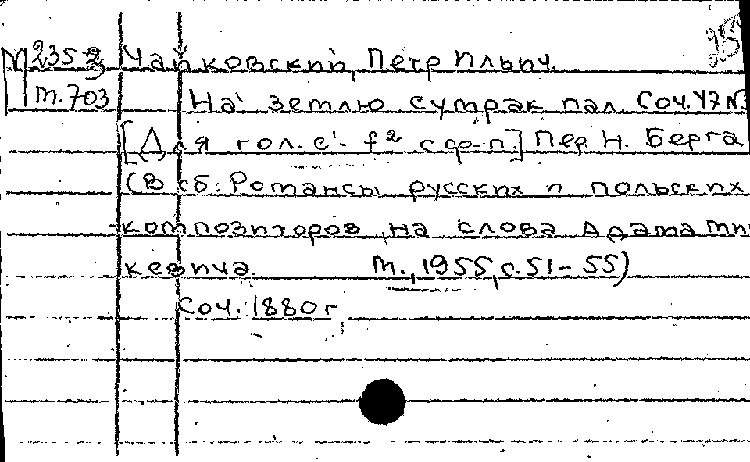 М 2353 Чайковский, Петр Ильич.
М.703 На землю сумрак пал. Соч. 47 N3
[Для гол. c¹-f² с ф-п.] Пер Н. Берга
(В сб: Романсы русских и польских
композиторов на слова Адама Миц
кевича. М., 1955, с. 51-55)
Соч. 1880 г